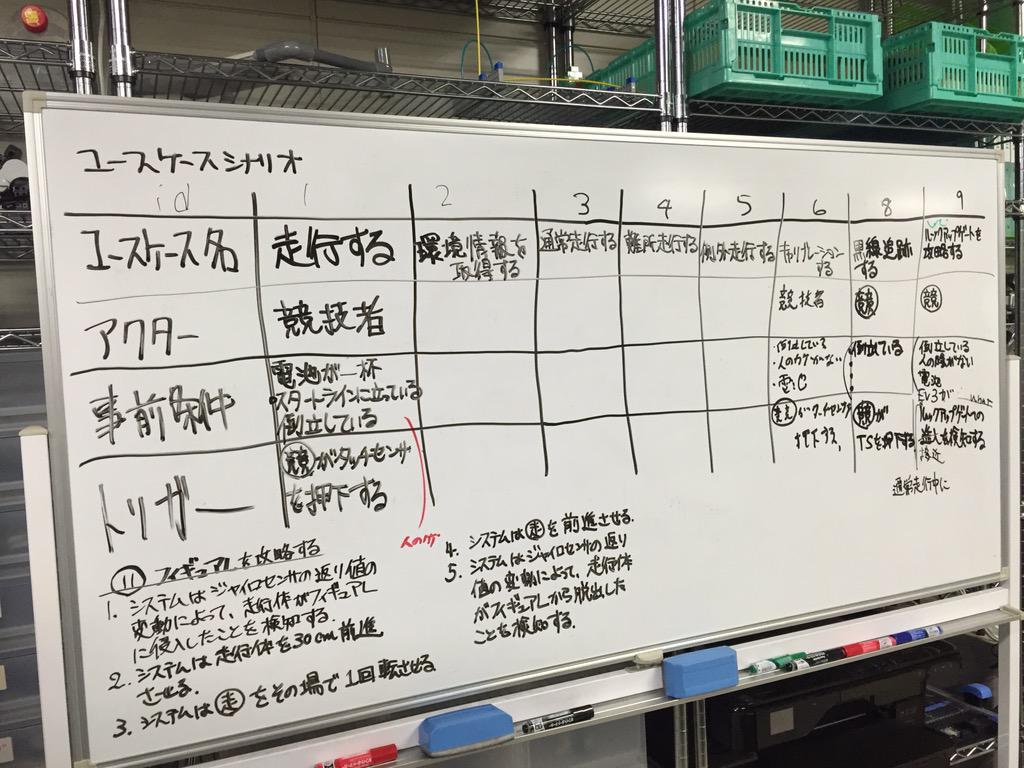 ユースケースシナリオ
id 1 2 3 4 5 6 8 9
ユースケース名 走行する 環境情報を 通常走行する 難所走行する 例外走行する キャリブレーション 黒線追跡 ルックアップゲートを
取得する する する 攻略する
アクター 競技者 競技者 競 競
事前条件 電池が一杯 ・倒立している 倒立している 倒立している
スタートラインに立っている 人の
倒立している 電池
EV3が
トリガー 競がタッチセンサ 競がタッチセンサ 競が ルックアップゲートへの
を押下する TSを押下する 進入を検知する
接近
通常走行中に
人の
11 フィギュアLを攻略する
1. システムはジャイロセンサの返り値の
変動によって、走行体がフィギュアL
に侵入したことを検知する.
2. システムは走行体を30cm前進
させる.
3. システムは走をその場で1回転させる
4. システムは走を前進させる.
5. システムはジャイロセンサの返り
値の変動によって、走行体
がフィギュアLから脱出した
ことを検知する.